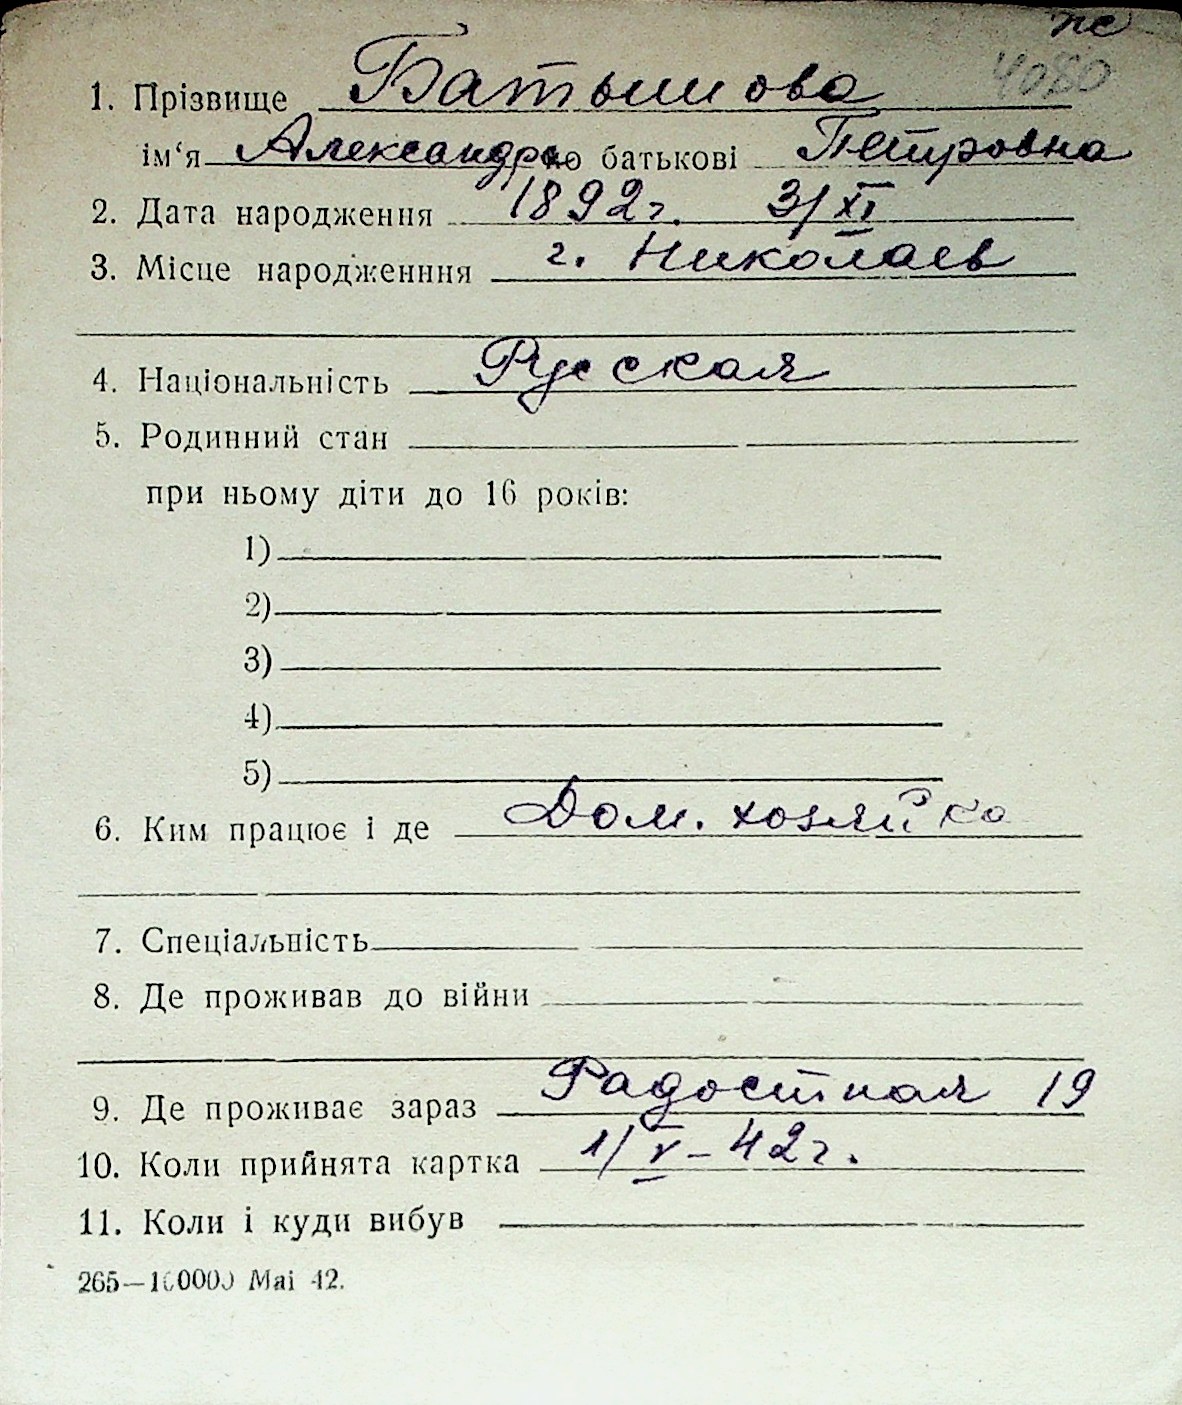 пс
4080
1. Прізвище Батышова
ім‘я Александра по батькові Петровна
2. Дата народження 1892г. 3/XI
3. Місце народженння г. Николаев
4. Національність Русская
5. Родинний стан
при ньому діти до 16 років:
1)
2)
3)
4)
5)
6. Ким працює і де Дом. хозяйка
7. Спеціальність
8. Де проживав до війни
9. Де проживає зараз Радостная 19
10. Коли прийнята картка 1/V – 42г.
11. Коли і куди вибув
265—10000) Mai 42.